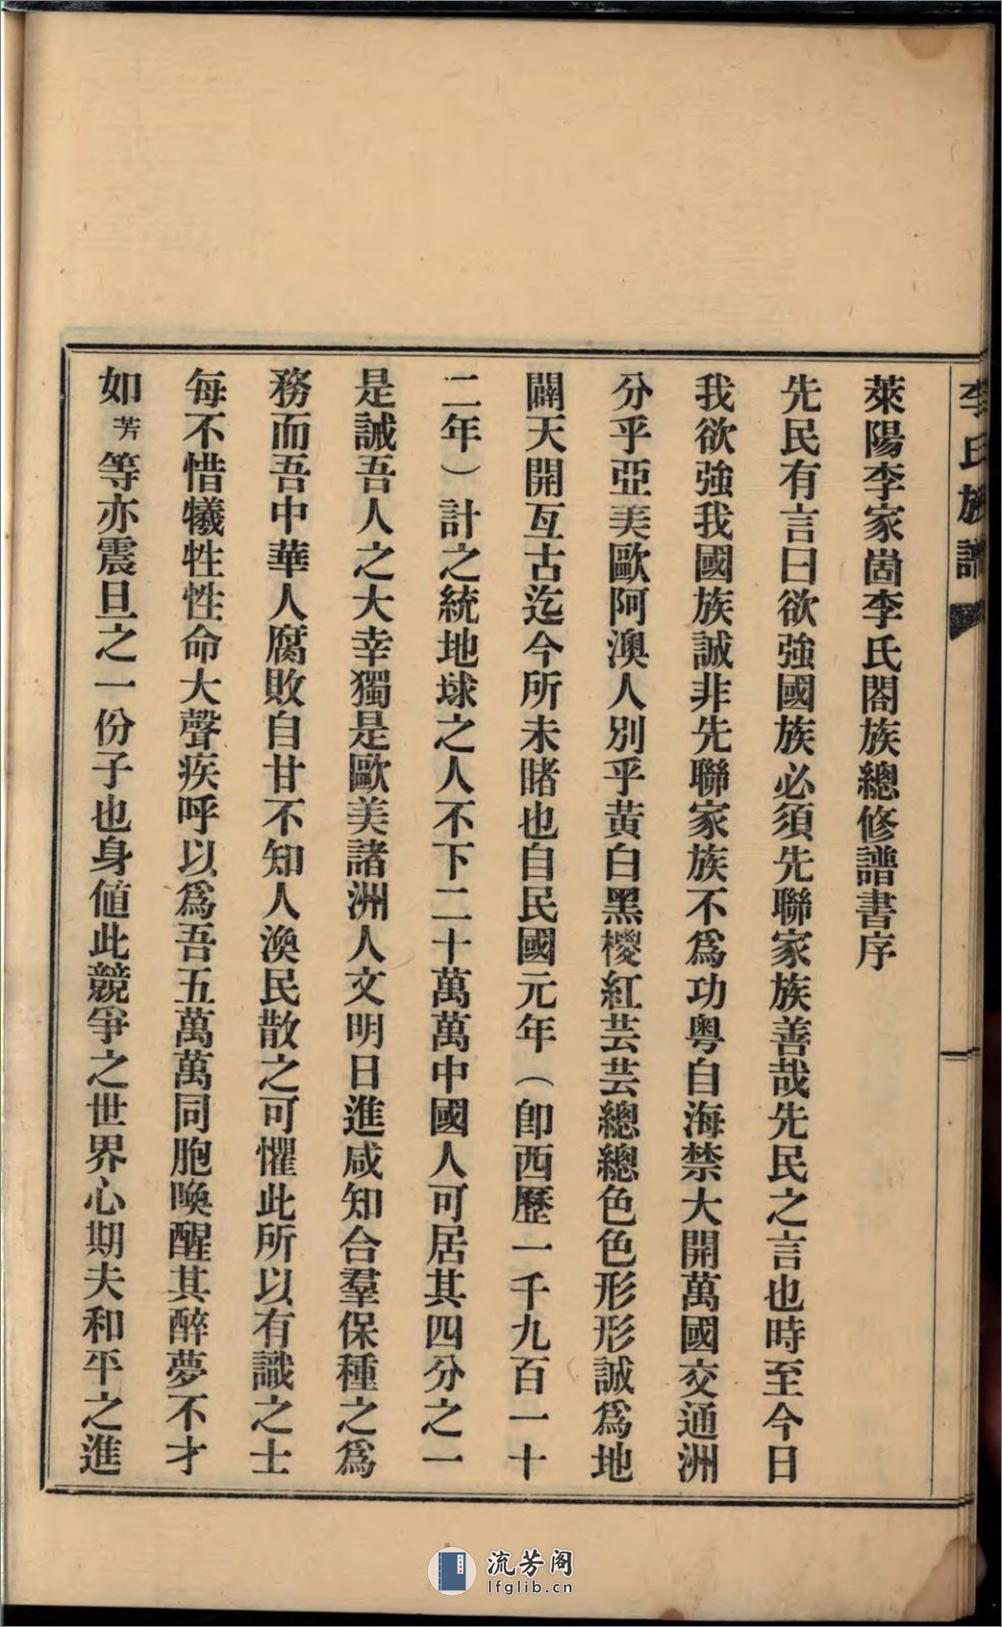 李氏族譜
萊陽李家崮李氏閤族總修譜書序
先民有言曰欲強國族必須先聯家族善哉先民之言也時至今日
我欲強我國族誠非先聯家族不爲功粤自海禁大開萬國交通洲
分乎亞美歐阿澳人別乎黃白黑椶紅芸芸總總色色形形誠爲地
闢天開亙古迄今所未睹也自民國元年（卽西歷一千九百一十
二年）計之統地球之人不下二十萬萬中國人可居其四分之一
是誠吾人之大幸獨是歐美諸洲人文明日進咸知合羣保種之爲
務而吾中華人腐敗自甘不知人渙民散之可懼此所以有識之士
每不惜犧牲性命大聲疾呼以爲吾五萬萬同胞喚醒其醉夢不才
如芳等亦震旦之一份子也身値此競爭之世界心期夫和平之進
流芳阁
lfglib.cn